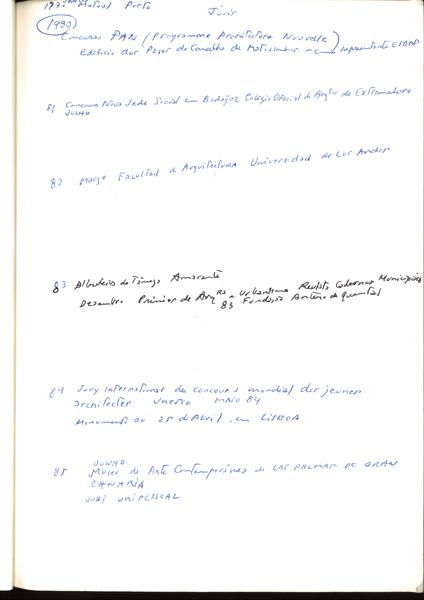 Mutual Porto
Júris
1980
Concurso PAN (Programme Architecture Nouvelle)
Edificio dos Paços do Concelho de Matosinhos - representante ESBAP
81 Concurso Nova Sede Social em Badajoz Colegio Oficial de Arqtos de Extremadura
JULHO
82 Março Facultad d Arquitectura Universidad de Los Andes
83 Albufeira do Tâmega Amarante
Dezembro Prémios de Arqra e Urbanismo Revista Cadernos Municipais
83 Fundação Antero de Quental
84 Jury International du concours mondial des jeunes
architectes Unesco MAIO 84
Monumento ao 25 d Abril, em LISBOA
85 JUNHO
Museu de Arte Contemporânea de LAS PALMAS DE GRAN
CANARIA
JURI UNIPESSOAL